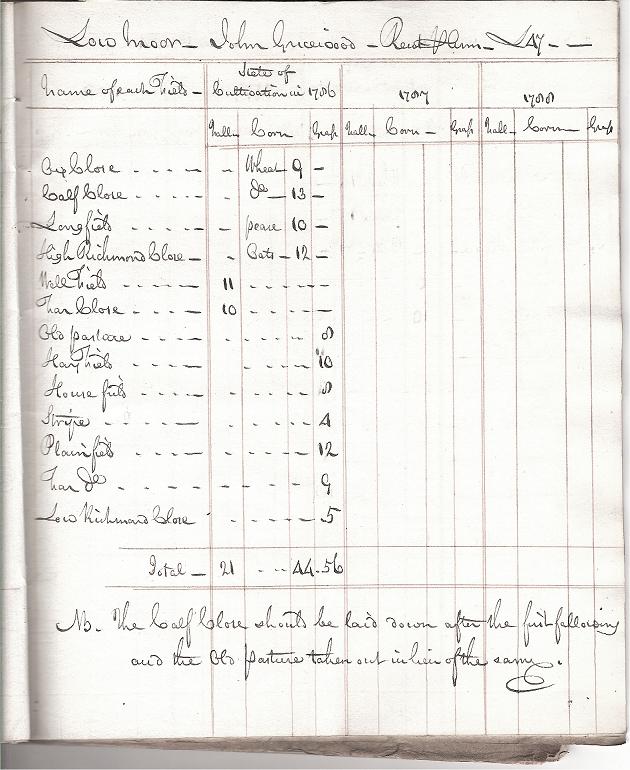 Low Moor - John Gricewood - Rent ℘ Ann - £47 - -
Name of each Field - State of Cultivation in 1786 1787 1788
Fall- Corn Grass Fall- Corn- Grass Fall- Corn Grass
Ox Close - - - - - Wheat 9 -
Calf Close - - - - - Do - 13 -
Longfield - - - - - - pease 10 -
High Richmond Close - - Oats - 12 -
Well Field - - - - - 11 - - - - - -
Thar Close - - - - - 10 - - - - -
Old pasture - - - - - - - - - - 8
Hay Field - - - - - - - - - - 10
House field - - - - - - - - - 8
Stripe - - - - - - - - - - - 4
Plainfield - - - - - - - - - - 12
Thar Do - - - - - - - - - - 9
Low Richmond Close - - - - - 5
Total - 21 - - 44 . 56
NB. The Calf Close should be laid down after the first fallowing
and the Old pasture taken out in lieu of the same.